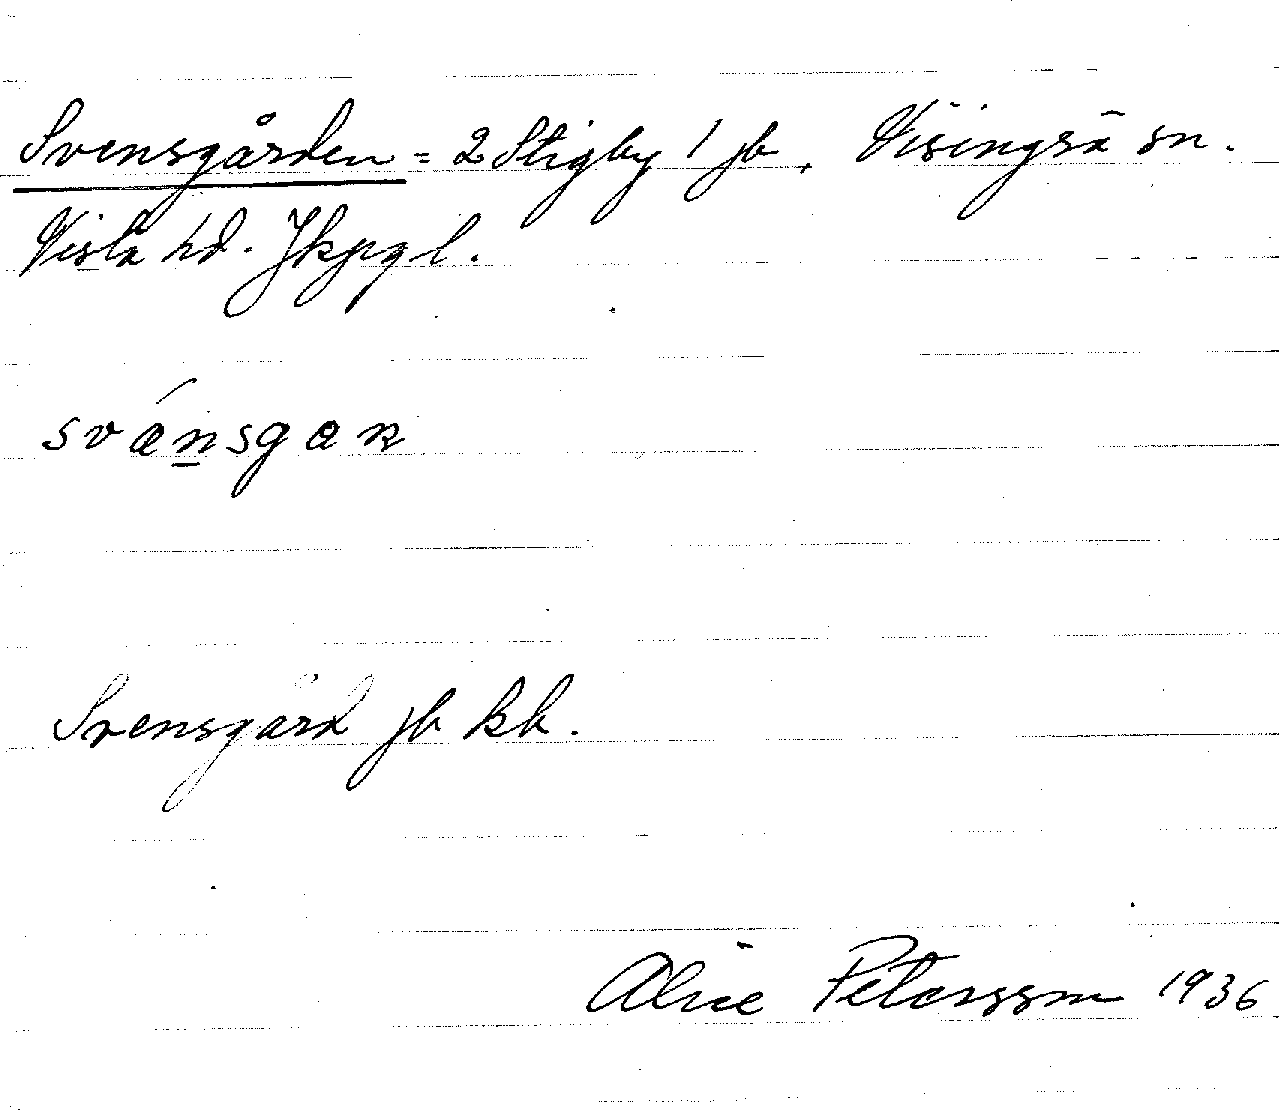 Svensgården = 2 Stigby 1 jb, Visingsö sn.
Vista hd. Jkpgl.
svǽnsgaʀ
Svensgård jb kb.
Alice Petersson 1936